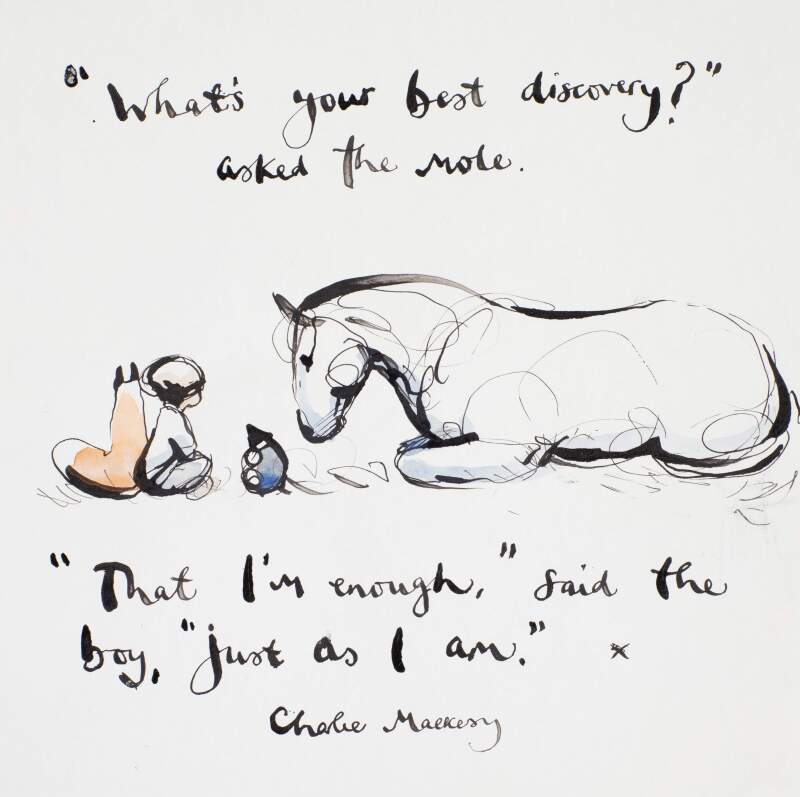 "What's your best discovery?"
asked the mole.
"That I'm enough," said the
boy, "just as I am." x
Charlie Mackesy